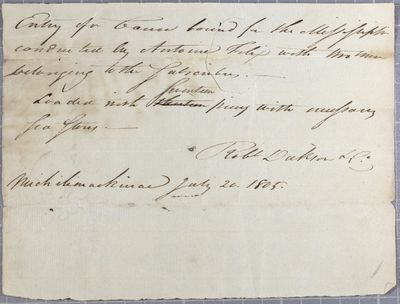 Entry of a Canoe bound for the Mississippi
conducted by Antoine Felix with two men
belonging to the Subscriber. —
Loaded with Seventeen pieces with necessary
Sea Stores. —
Robt Dickson & Co
Michilimackinac July 20 1805.